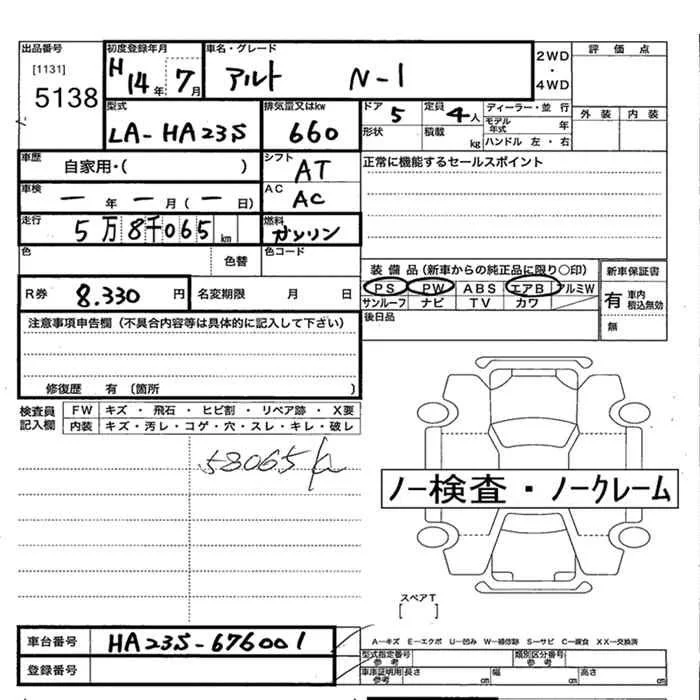 出品番号 初度登録年月 車名・グレード 2WD・4WD 評価点
[1131] 5138 H14年7月 アルト N-1
外装 内装
型式 排気量又はkw ドア 5 定員 4人 ディーラー・並行
LA-HA23S 660 形状 積載 kg モデル年式 年
ハンドル 左・右
車歴 自家用・( ) シフト AT 正常に機能するセールスポイント
車検 ー年ー月(ー日) AC AC
走行 5万8千065km 燃料 ガソリン
色 色替 色コード
装備品(新車からの純正品に限り○印) 新車保証書
R券 8.330円 名変期限 月 日 PS PW ABS エアB アルミW 有 車内税込無効
サンルーフ ナビ TV カワ 無
注意事項申告欄(不具合内容等は具体的に記入して下さい) 後日品
修復歴 有 (箇所 )
検査員記入欄 FW キズ・飛石・ヒビ割・リペア跡・X要
内装 キズ・汚レ・コゲ・穴・スレ・キレ・破レ
58065k
ノー検査・ノークレーム
スペアT
[ ]
車台番号 HA23S-676001 A-キズ E-エクボ U-凹み W-補修跡 S-サビ C-腐食 XX-交換済
登録番号 型式指定番号 参考 類別区分番号 参考
車庫証明用参考 長さ cm 幅 cm 高さ cm